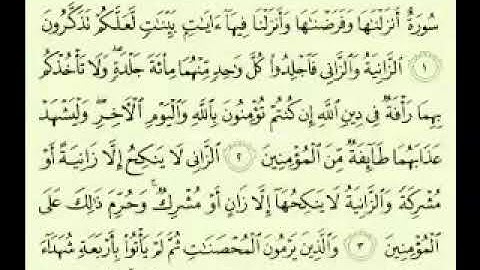 سُورَةٌ أَنزَلْنَـٰهَا وَفَرَضْنَـٰهَا وَأَنزَلْنَا فِيهَآ ءَايَـٰتٍۭ بَيِّنَـٰتٍ لَّعَلَّكُمْ تَذَكَّرُونَ
١ ٱلزَّانِيَةُ وَٱلزَّانِى فَٱجْلِدُوا۟ كُلَّ وَٰحِدٍ مِّنْهُمَا مِا۟ئَةَ جَلْدَةٍ ۖ وَلَا تَأْخُذْكُم
بِهِمَا رَأْفَةٌ فِى دِينِ ٱللَّهِ إِن كُنتُمْ تُؤْمِنُونَ بِٱللَّهِ وَٱلْيَوْمِ ٱلْـَٔاخِرِ ۖ وَلْيَشْهَدْ
عَذَابَهُمَا طَآئِفَةٌ مِّنَ ٱلْمُؤْمِنِينَ ٢ ٱلزَّانِى لَا يَنكِحُ إِلَّا زَانِيَةً أَوْ
مُشْرِكَةً وَٱلزَّانِيَةُ لَا يَنكِحُهَآ إِلَّا زَانٍ أَوْ مُشْرِكٌ ۚ وَحُرِّمَ ذَٰلِكَ عَلَى
ٱلْمُؤْمِنِينَ ٣ وَٱلَّذِينَ يَرْمُونَ ٱلْمُحْصَنَـٰتِ ثُمَّ لَمْ يَأْتُوا۟ بِأَرْبَعَةِ شُهَدَآءَ